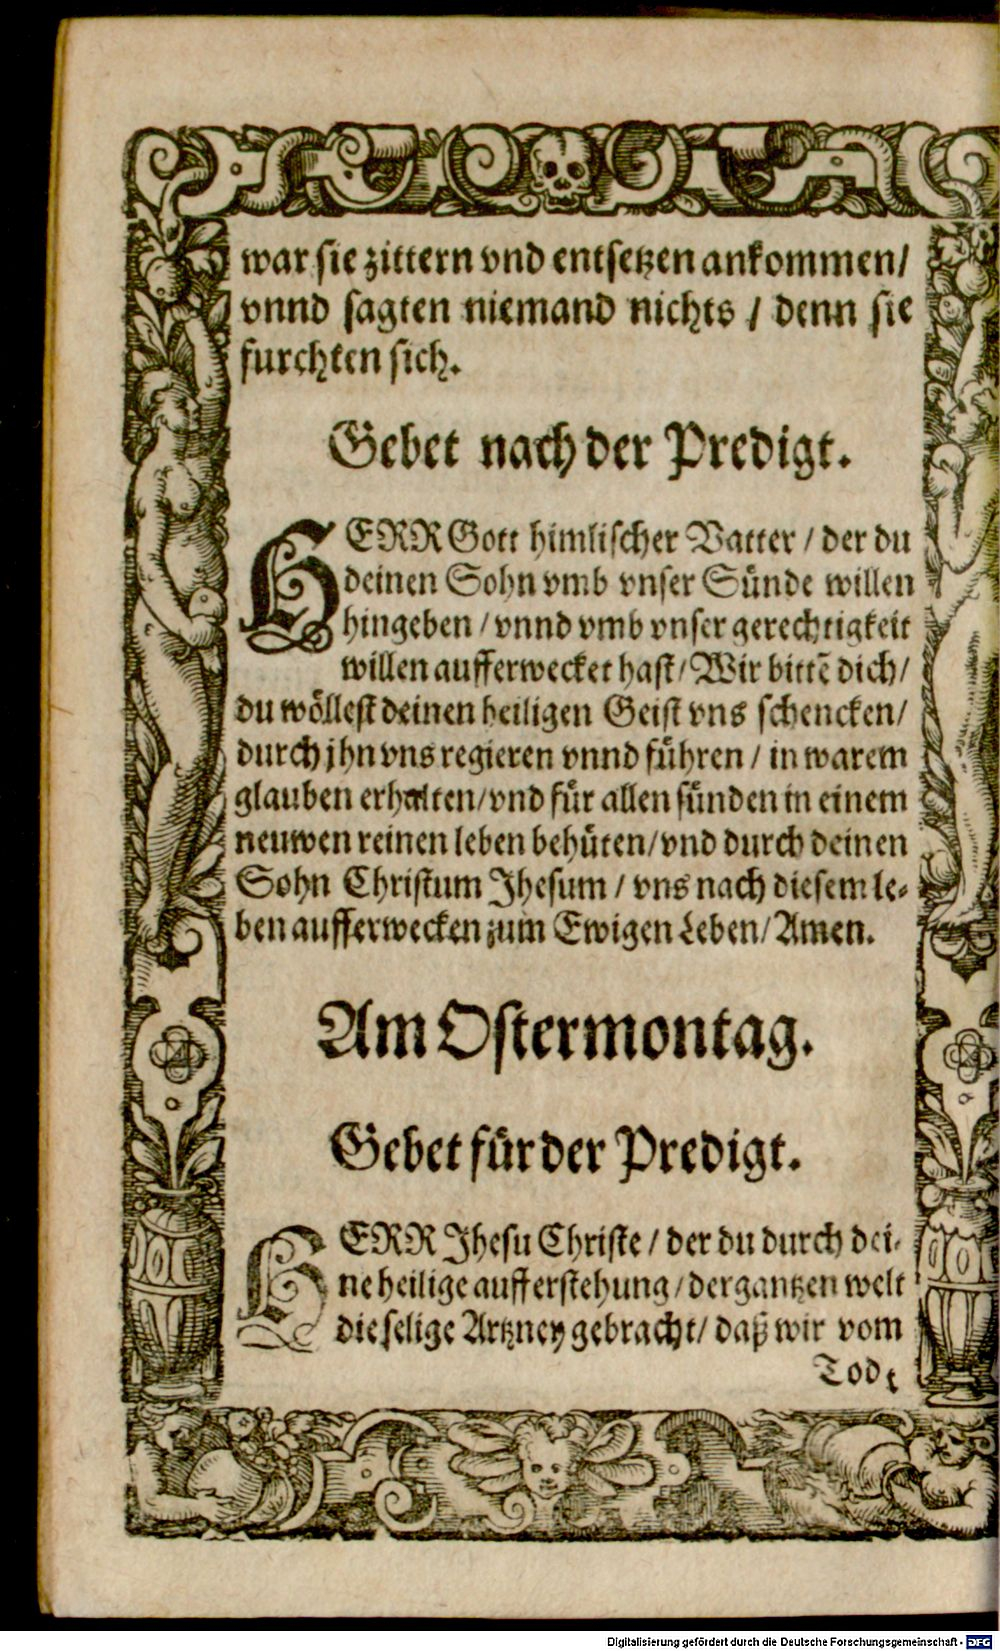 war sie zittern vnd entsetzen ankommen/
vnnd sagten niemand nichts / denn sie
furchten sich.
Gebet nach der Predigt.
HERR Gott himlischer Vatter / der du
deinen Sohn vmb vnser Sünde willen
hingeben / vnnd vmb vnser gerechtigkeit
willen aufferwecket hast/ Wir bittē dich/
du wöllest deinen heiligen Geist vns schencken/
durch jhn vns regieren vnnd führen / in warem
glauben erhalten/ vnd für allen sünden in einem
neuwen reinen leben behüten/ vnd durch deinen
Sohn Christum Jhesum / vns nach diesem le-
ben aufferwecken zum Ewigen Leben/ Amen.
Am Ostermontag.
Gebet für der Predigt.
HERR Jhesu Christe / der du durch dei-
ne heilige aufferstehung / der gantzen welt
die selige Artzney gebracht/ daß wir vom
Tode
Digitalisierung gefördert durch die Deutsche Forschungsgemeinschaft - DFG